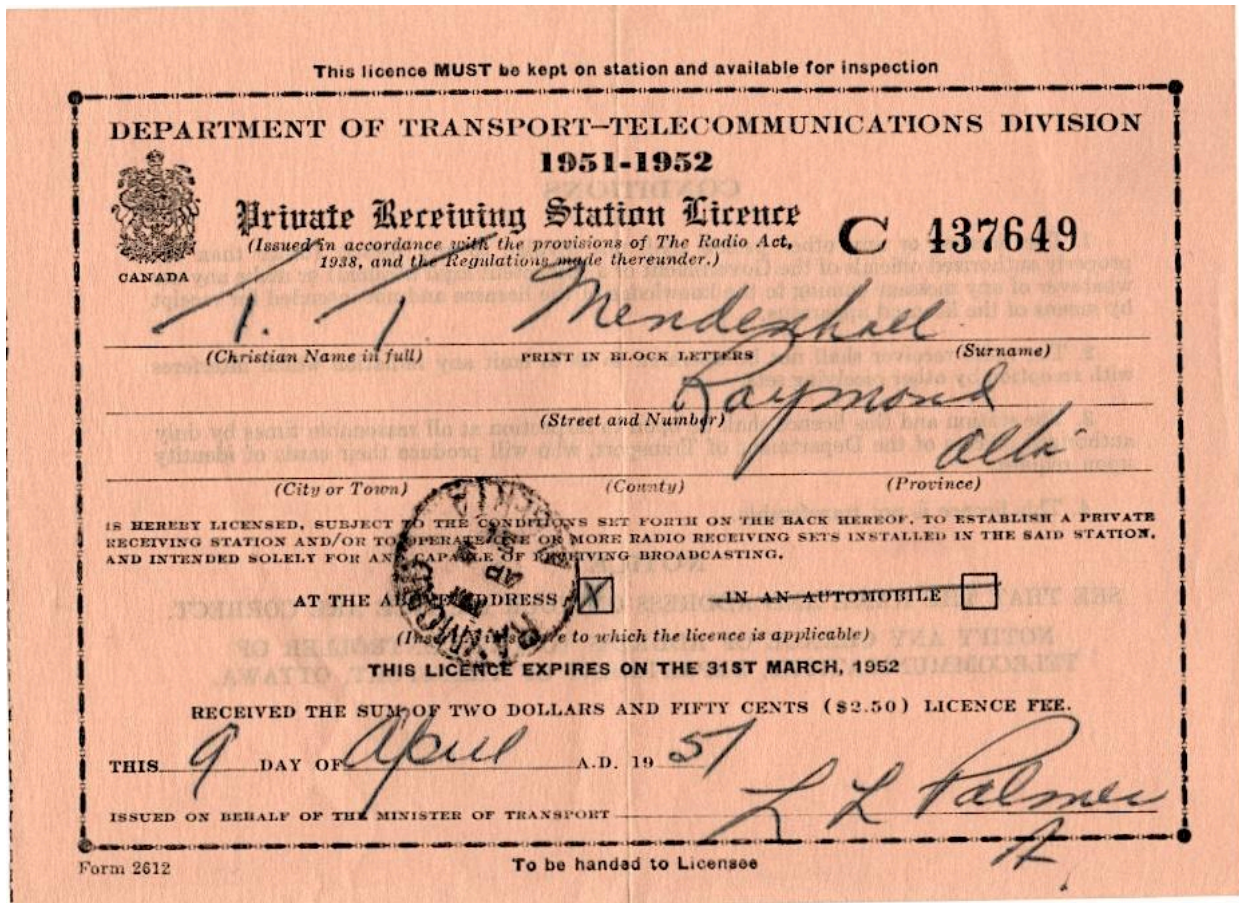 This licence MUST be kept on station and available for inspection
DEPARTMENT OF TRANSPORT—TELECOMMUNICATIONS DIVISION
1951-1952
Private Receiving Station Licence
C 437649
(Issued in accordance with the provisions of The Radio Act,
1938, and the Regulations made thereunder.)
CANADA
T. T. Mendenhall
(Christian Name in full) PRINT IN BLOCK LETTERS (Surname)
Raymond
(Street and Number)
Alta
(City or Town) (County) (Province)
IS HEREBY LICENSED, SUBJECT TO THE CONDITIONS SET FORTH ON THE BACK HEREOF, TO ESTABLISH A PRIVATE
RECEIVING STATION AND/OR TO OPERATE ONE OR MORE RADIO RECEIVING SETS INSTALLED IN THE SAID STATION,
AND INTENDED SOLELY FOR AND CAPABLE OF RECEIVING BROADCASTING.
AT THE ABOVE ADDRESS X IN AN AUTOMOBILE
(Insert X in square to which the licence is applicable)
THIS LICENCE EXPIRES ON THE 31ST MARCH, 1952
RECEIVED THE SUM OF TWO DOLLARS AND FIFTY CENTS ($2.50) LICENCE FEE.
THIS 9 DAY OF April A.D. 19 51
ISSUED ON BEHALF OF THE MINISTER OF TRANSPORT L L Palmer
Form 2612 To be handed to Licensee